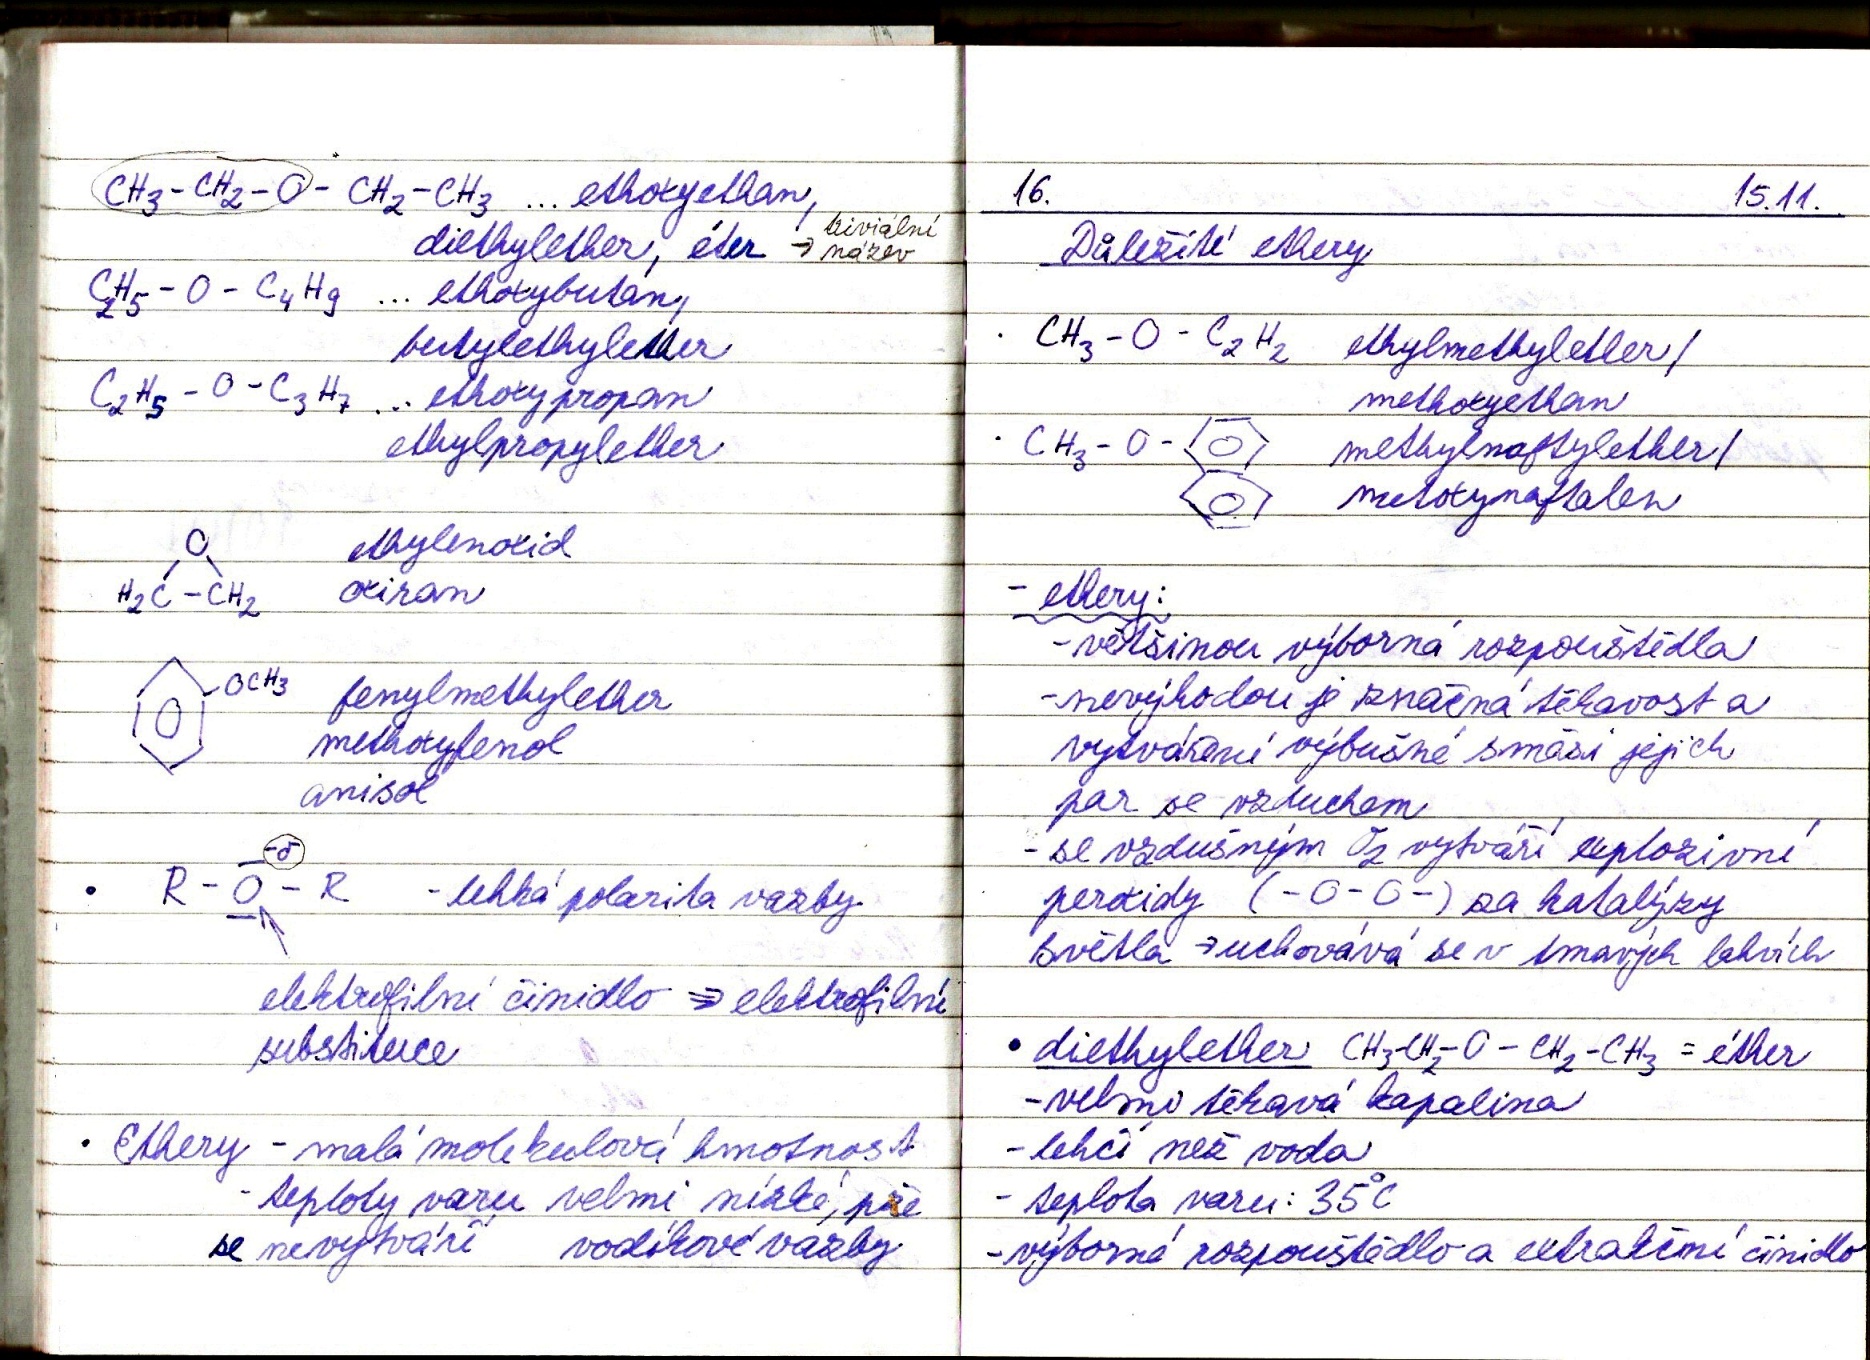 CH3-CH2-O-CH2-CH3 ... ethoxyethan,
diethylether, éter → triviální název
C2H5-O-C4H9 ... ethoxybutan,
butylethylether
C2H5-O-C3H7 ... ethoxypropan
ethylpropylether
O ethylenoxid
H2C-CH2 oxiran
OCH3 fenylmethylether
methoxyfenol
anisol
-δ
• R-O-R - lehká polarita vazby
elektrofilní činidlo ⇒ elektrofilní
substituce
• Ethery - malá molekulová hmotnost
- teploty varu velmi nízké,
se nevytváří vodíkové vazby
16. 15.11.
Důležité ethery
• CH3-O-C2H2 ethylmethylether/
methoxyethan
• CH3-O- methylnaftylether/
metoxynaftalen
- ethery:
- většinou výborná rozpouštědla
- nevýhodou je značná těkavost a
vytváření výbušné směsi jejich
par se vzduchem
- se vzdušným O2 vytváří explozivní
peroxidy (-O-O-) za katalýzy
světla → uchovává se v tmavých lahvích
• diethylether CH3-CH2-O-CH2-CH3 = éther
- velmi těkavá kapalina
- lehčí než voda
- teplota varu: 35°C
- výborné rozpouštědlo a extrakční činidlo